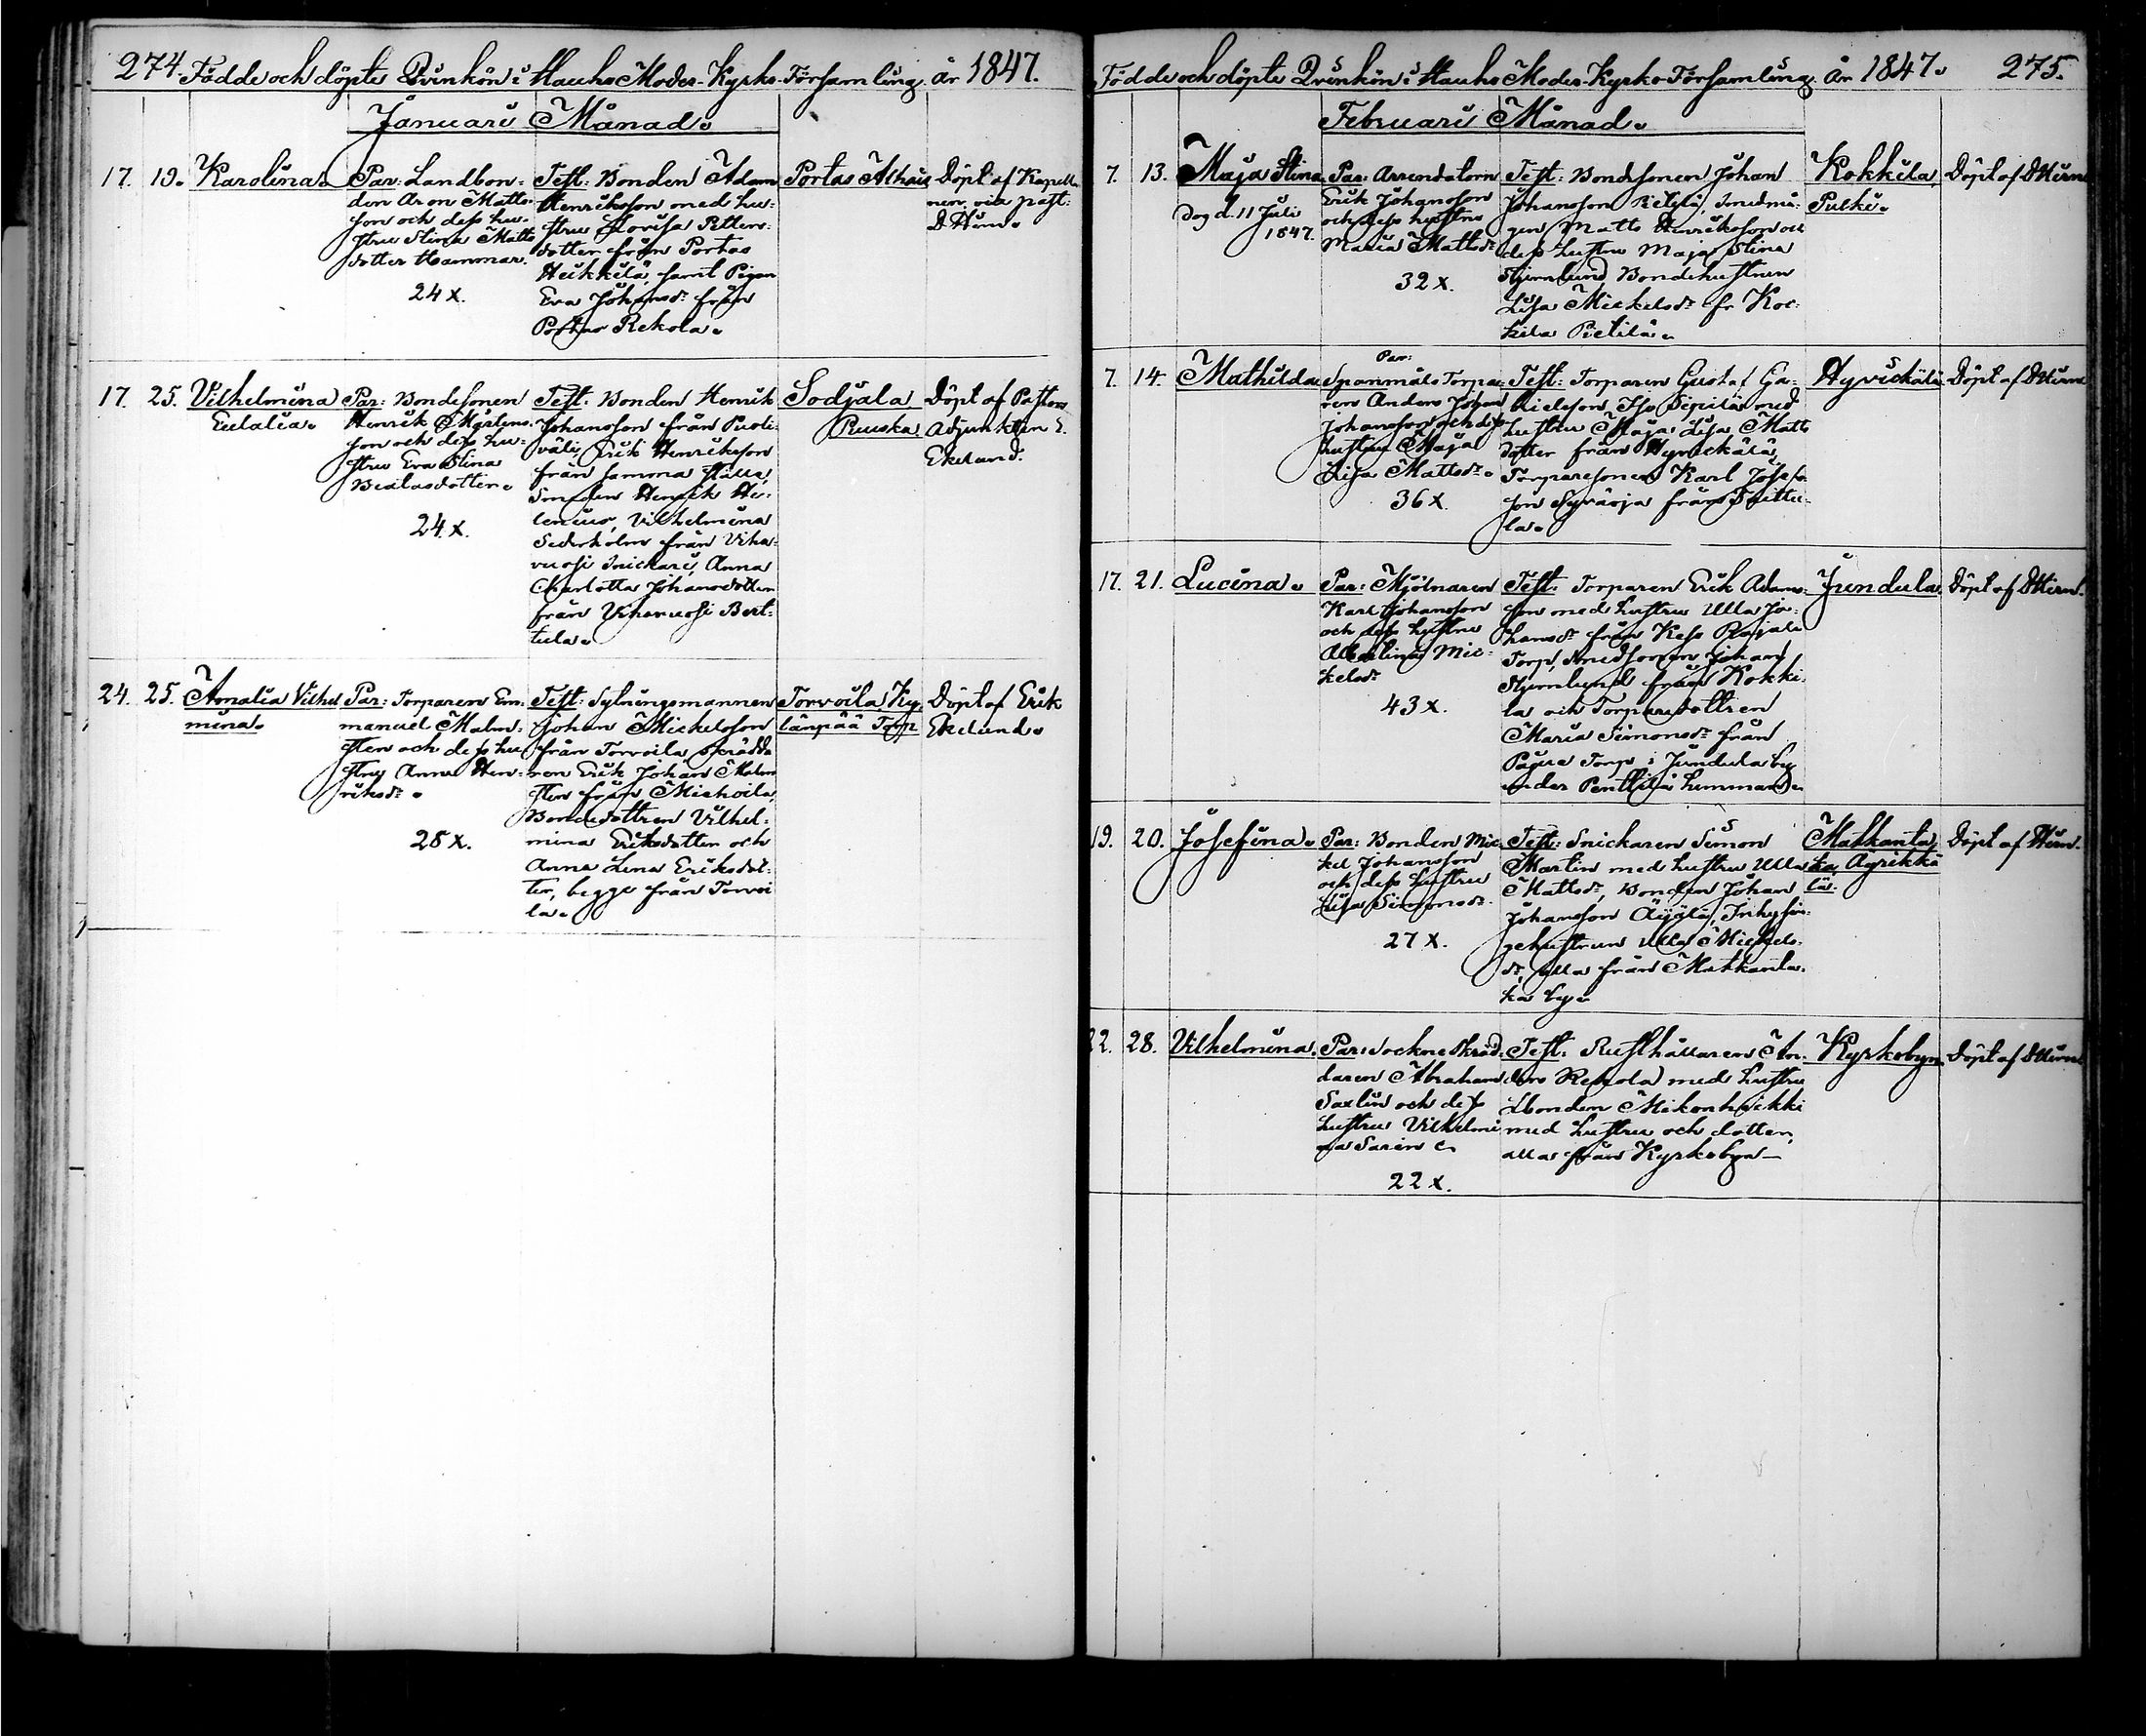 274. Födde och döpte Qvinkön i Hauho Moder-Kyrko-Församling år 1847.
Januari Månad.
17. 19. Karolina.
Par: Landbon-
den Aron Matts-
son och dess hu-
stru Stina Matts
dotter Hammar.
24 x.
Test: Bonden Adam
Henriksson med hu-
stru Lovisa Petters-
dotter från Portas
Heikkilä, samt Pigan
Eva Johansdr från
Portas Rekola.
Portas
Döpt af Kapella-
nen, vice past:
D Hirn.
17. 25. Vilhelmina
Eulalia.
Par: Bondesonen
Henrik Mårtens-
son och dess hu-
stru Eva Stina
24. x.
Test: Bonden Henrik
Johansson från Puoli-
väli, Erik Henriksson
från samma ställe,
Smeden Henrik He-
lenius, Vilhelmina
Sederholm från Viha-
vuosi Snickari, Anna
Charlotta Johansdotter
från Vihavuosi Bert-
tula.
Sodjala
Ruuska.
Döpt af Pastors
Adjunkten E.
Ekelund.
24. 25. Amalia Vilhel
mina.
Par: Torparen Em-
manuel Malm-
sten och dess hu
stru Anna Hen-
riksdr.
28 x.
Test: Sexningsmannen
Johan Mickelsson
från Torvoila, skrädda
ren Erik Johan Malm
sten från Miehoila,
Bondedottren Vilhel-
mina Eriksdotter och
Anna Lena Eriksdot-
ter, begge från Torvoi
la.
Torvoila, Ky-
länpää Torp.
Döpt af Erik
Ekelund.
Födde och döpte Qvinkön i Hauho Moder-Kyrko-Församling år 1847. 275.
Februari Månad.
7. 13. Maja Stina
Dog d. 11 Juli
1847.
Par: Arrendatorn
Erik Johansson
och dess hustru
Maria Mattsdr
32 x.
Test: Bondesonen Johan
Johansson Pietilä, Smedmå-
gen Matts Henriksson och
dess hustru Maja Stina
Stjernlund Bondehustrun
Lisa Mickelsdr fr Kok-
kila Pietilä.
Kokkila,
Pulki.
Döpt af D Hirn
7. 14. Mathilda
Par:
Spanmåls Torpa-
ren Anders Johan
Johansson och dess
hustru Maja
Lisa Mattsdr.
36 x.
Test: Torparen Gustaf Ga-
brielsson Iso Sipilä med
hustru Maja Lisa Matts
dotter från Hyvickälä,
Torparesonen Karl Josefs-
son Syväoja från
la.
Hyvickälä.
Döpt af D Hirn
17. 21. Lucina.
Par: Mjölnaren
Karl Johansson
och dess hustru
Albertina Mic-
kelsdr
43 x.
Test: Torparen Erik Adams-
son med hustru Ulla Jo-
hansdr från
Torp, Smedsonen Johan
Stjernlund från Kokki-
la och Torparedottren
Maria Simonsdr från
Torp i Jundula by
under Penttilä hemman.
Jundula.
Döpt af D Hirn.
19. 20. Josefina.
Par: Bonden Mic
kel Johansson
och dess hustru
Lisa Simonsdr.
27 x.
Test: Snickaren Simon
Martin med hustru Ulla
Mattsdr, Bonden Johan
Johansson Äijälä, Inhysin-
gehustrun Ulla Mickels-
dr, alla från Matkanta-
ka by.
Matkanta
ka, Äyrikkä
lä.
Döpt af Hirn.
22. 28. Vilhelmina.
Par: Sockne Skräd-
daren Abraham
Saxlin och dess
hustru Vilhelmi
na Sarin
22 x.
Test: Rusthållaren An-
ders Rekola med hustru
Lbonden Mikonheikki
med hustru och dotter,
alla från Kyrkobyn
Kyrkobyn
Döpt af D Hirn